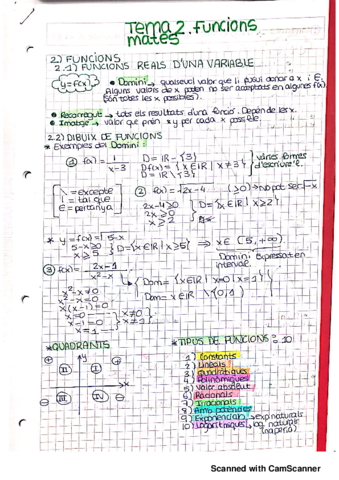 Tema 2. Funcions
mates
2) FUNCIONS
2.1) FUNCIONS REALS D'UNA VARIABLE
y=f(x)
* Domini: qualsevol valor que li pugui donar a x i ∈.
Alguns valors de x poden no ser acceptats en algunes f(x).
Són totes les x possibles).
* Recorregut → tots els resultats d'una funció. Depèn de les x.
* Imatge → valor que pren x y per cada x possible.
2.2) DIBUIX DE FUNCIONS
* Exemples del Domini:
① f(x) = 1/x-3
D = ℝ - {3}
D = {x∈ℝ | x ≠ 3}
D = ℝ \ {3}
vàries formes
d'escriure'l.
\ = excepte
| = tal que
∈ = pertanya
② f(x) = √2x-4
(≥0) → No pot ser √-x
2x-4≥0
2x≥4
x ≥ 2
D = {x∈ℝ | x≥2}
* y = f(x) = √5-x
5-x≥0
x≥5
D = {x∈ℝ | x≥5} ⇒ x∈ [5,+∞)
Domini expressat en
interval.
③ f(x) = 2x-1/x²-x
x²-x≠0
x²-x=0
x(x-1)=0
x=0 → x≠0
x-1=0 → x≠1
x=1
Dom = {x∈ℝ | x≠0 i x≠1}
Dom = x∈ℝ \ {0,1}
* QUADRANTS
y
x
I
II
III
IV
* TIPUS DE FUNCIONS: 10
1) Constants
2) Lineals
3) Quadràtiques
4) Polinòmiques
5) Valor absolut
6) Racionals
7) Irracionals
8) Amb potències
9) Exponencials → exp naturals
10) Logarítmiques → log naturals
(neperià)
Scanned with CamScanner